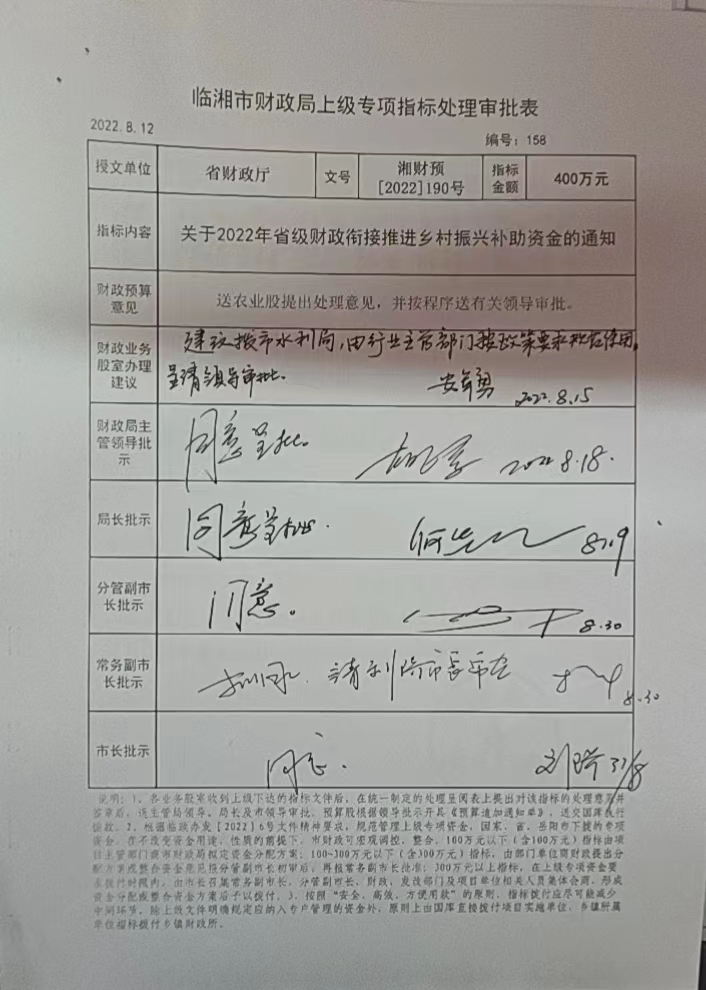 临湘市财政局上级专项指标处理审批表
2022.8.12
编号：158
授文单位 省财政厅 文号 湘财预[2022]190号 指标金额 400万元
指标内容 关于2022年省级财政衔接推进乡村振兴补助资金的通知
财政预算意见 送农业股提出处理意见，并按程序送有关领导审批。
财政业务股室办理建议 建议拨市水利局，由行业主管部门按政策要求规范使用。
呈请领导审批。 2022.8.15
财政局主管领导批示 同意呈批。 2022 8.18.
局长批示 同意呈批. 8.19
分管副市长批示 同意。 8.30
常务副市长批示 请刘 市长审 8.30
市长批示 同意. 刘 31/8
说明：1、各业务股室收到上级下达的指标文件后，在统一制定的处理呈阅表上提出对该指标的处理意见并
签章后，送主管局领导、局长及市领导审批，预算股根据领导批示开具《预算追加通知单》，送交国库执行
拨款。2、根据临政办发[2022]6号文件精神要求，规范管理上级专项资金，国家、省、岳阳市下拨的专项
资金，在不改变资金用途、性质的前提下，市财政可宏观调控、整合。100万元以下（含100万元）指标由项
目主管部门商市财政局拟定资金分配方案；100-300万元以下（含300万元）指标，由部门单位商财政提出分
配方案或整合资金意见报分管副市长初审后，再报常务副市长批准；300万元以上指标，在上级专项资金要
求拨付时限内，由市长召集常务副市长、分管副市长、财政、发改部门及项目单位相关人员集体会商，形成
资金分配或整合资金方案后予以拨付。3、按照“安全、高效、方便用款”的原则，指标拨付应尽可能减少
中间环节，除上级文件明确规定应纳入专户管理的资金外，原则上由国库直接拨付项目实施单位，乡镇所属
单位指标拨付乡镇财政所。